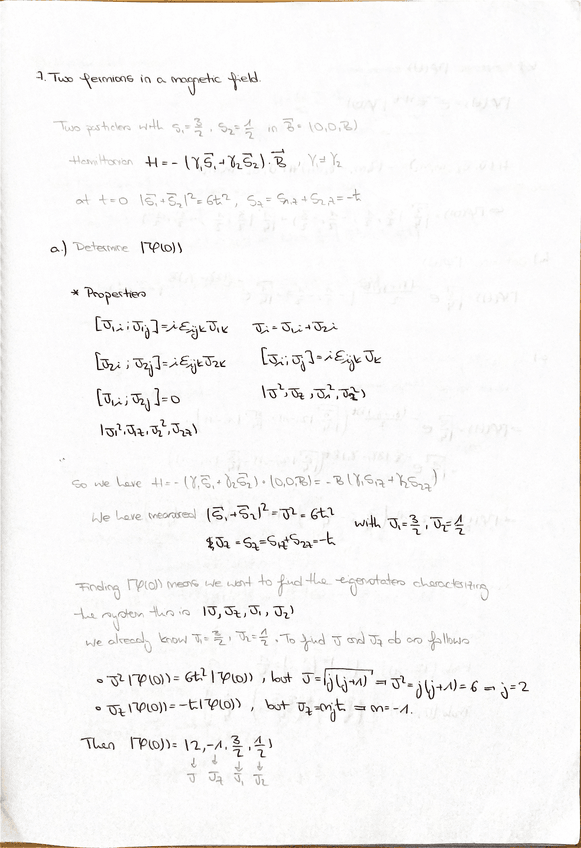 7. Two fermions in a magnetic field.
Two particles with S₁=3/2, S₂=1/2 in B⃗=(0,0,B)
Hamiltonian H=-(γ₁S⃗₁+γ₂S⃗₂)·B⃗, γ₁≠γ₂
at t=0 |S⃗₁+S⃗₂|²=6ħ², S_z=S₁,z+S₂,z=-ħ
a.) Determine |Ψ(0)⟩
* Properties
[J₁i;J₁j]=iε_ijk J₁k Ji=J₁i+J₂i
[J₂i;J₂j]=iε_ijk J₂k [Ji;Jj]=iε_ijk Jk
[J₁i;J₂j]=0 |J²,J_z,J₁²,J₂²⟩
|J₁²,J₁z,J₂²,J₂z⟩
So we have H=-(γ₁S⃗₁+γ₂S⃗₂)·(0,0,B)=-B(γ₁S₁z+γ₂S₂z)
We have measured (S⃗₁+S⃗₂)²=J²=6ħ² with J₁=3/2, J₂=1/2
J_z=S_z=S₁z+S₂z=-ħ
Finding |Ψ(0)⟩ means we want to find the eigenstates characterizing
the system this is |J,J_z,J₁,J₂⟩
We already know J₁=3/2, J₂=1/2. To find J and J_z do as follows
∘ J²|Ψ(0)⟩=6ħ²|Ψ(0)⟩, but J=√j(j+1) ⇒ J²=j(j+1)=6 ⇒ j=2
∘ J_z|Ψ(0)⟩=-ħ|Ψ(0)⟩, but J_z=m_jħ ⇒ m=-1.
Then |Ψ(0)⟩=|2,-1,3/2,1/2⟩
↓ ↓ ↓ ↓
J J_z J₁ J₂